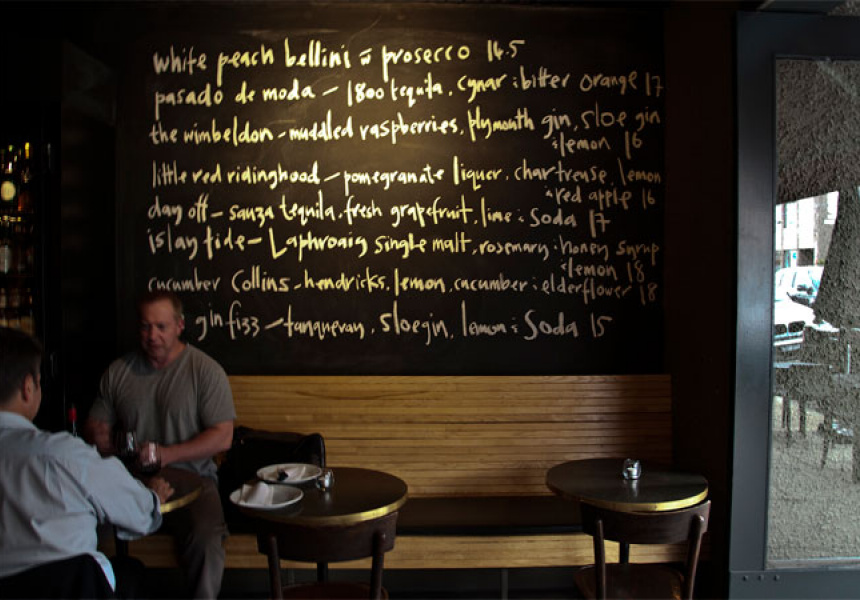 white peach bellini w prosecco 14.5
pasado de moda – 1800 tequila, cynar & bitter orange 17
the wimbeldon – muddled raspberries, plymouth gin, sloe gin
& lemon 16
little red ridinghood – pomegranate liquer, chartreuse, lemon
& red apple 16
day off – sauza tequila, fresh grapefruit, lime & soda 17
islay tide – Laphroaig single malt, rosemary & honey syrup
& lemon 18
cucumber Collins – hendricks, lemon, cucumber & elderflower 18
gin fizz – tanqueray, sloe gin, lemon & Soda 15